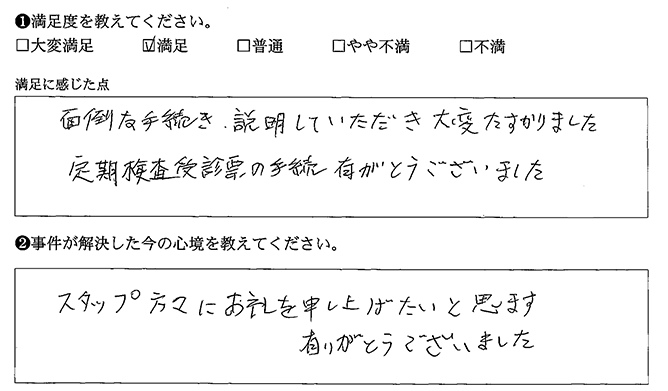 ❶満足度を教えてください。
□大変満足 ☑満足 □普通 □やや不満 □不満
満足に感じた点
面倒な手続き、説明していただき 大変たすかりました
定期検査受診票の手続 有がとうございました
❷事件が解決した今の心境を教えてください。
スタップ方々にお礼を申し上げたいと思ます
有りがとうございました